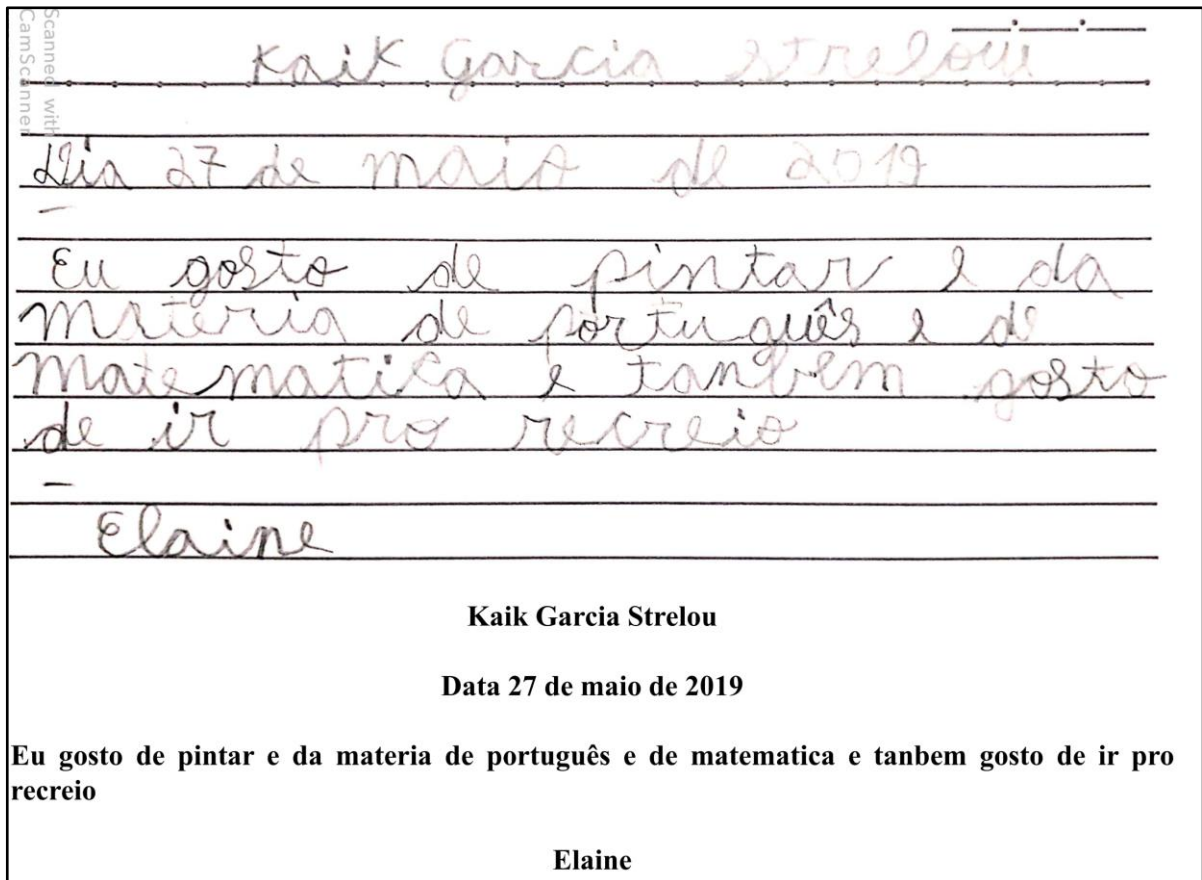 Scanned with
CamScanner
Kaik Garcia Strelow
Dia 27 de maio de 2019
Eu gosto de pintar e da
materia de português e de
matematica e tanbem gosto
de ir pro recreio
Elaine
Kaik Garcia Strelou
Data 27 de maio de 2019
Eu gosto de pintar e da materia de português e de matematica e tanbem gosto de ir pro
recreio
Elaine